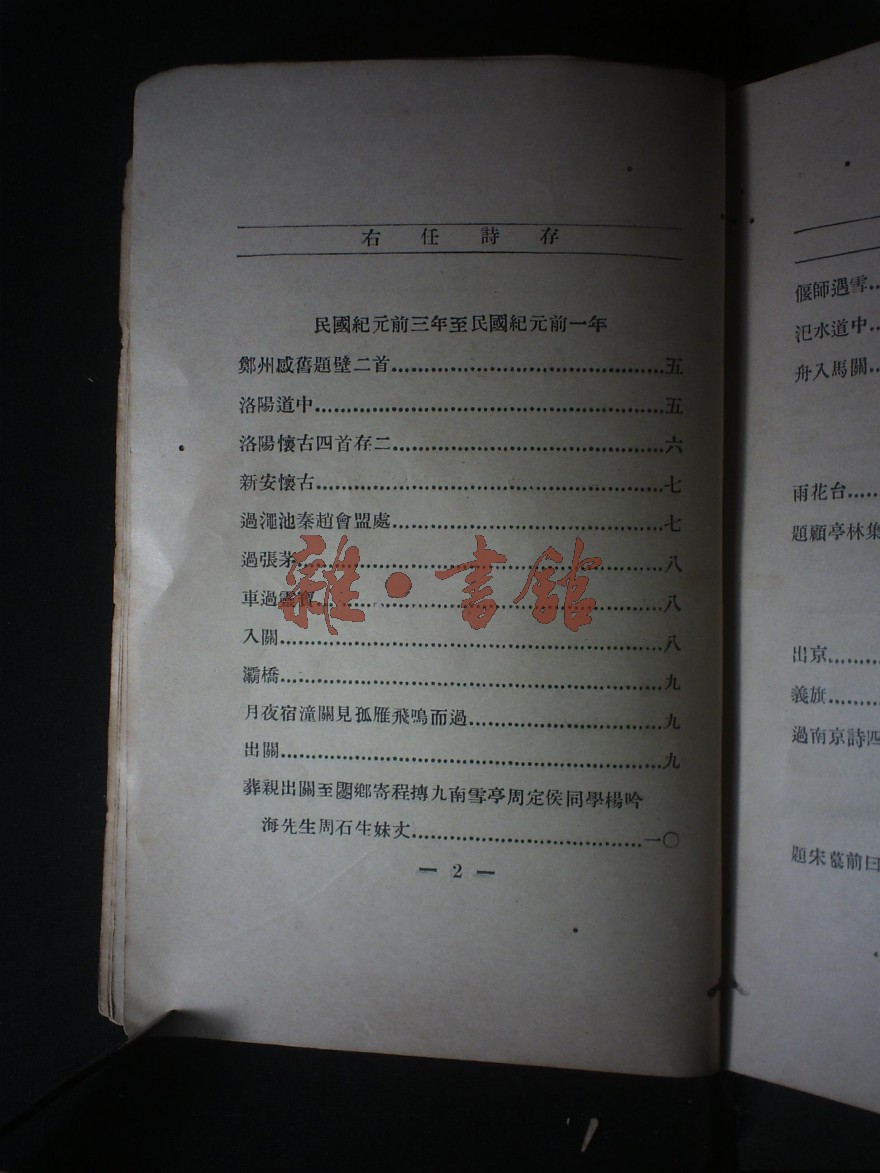 右任詩存
民國紀元前三年至民國紀元前一年
鄭州感舊題壁二首……五
洛陽道中……五
洛陽懷古四首存二……六
新安懷古……七
過澠池秦趙會盟處……七
過張茅……八
車過靈寶……八
入關……八
灞橋……九
月夜宿潼關見孤雁飛鳴而過……九
出關……九
葬親出關至閿鄉寄程摶九南雪亭周定侯同學楊吟
海先生周石生妹丈……一〇
— 2 —
雜·書館
偃師遇雪
汜水道中
舟入馬關
雨花台
題顧亭林集
出京
義旗
過南京詩四
題宋墓前曰